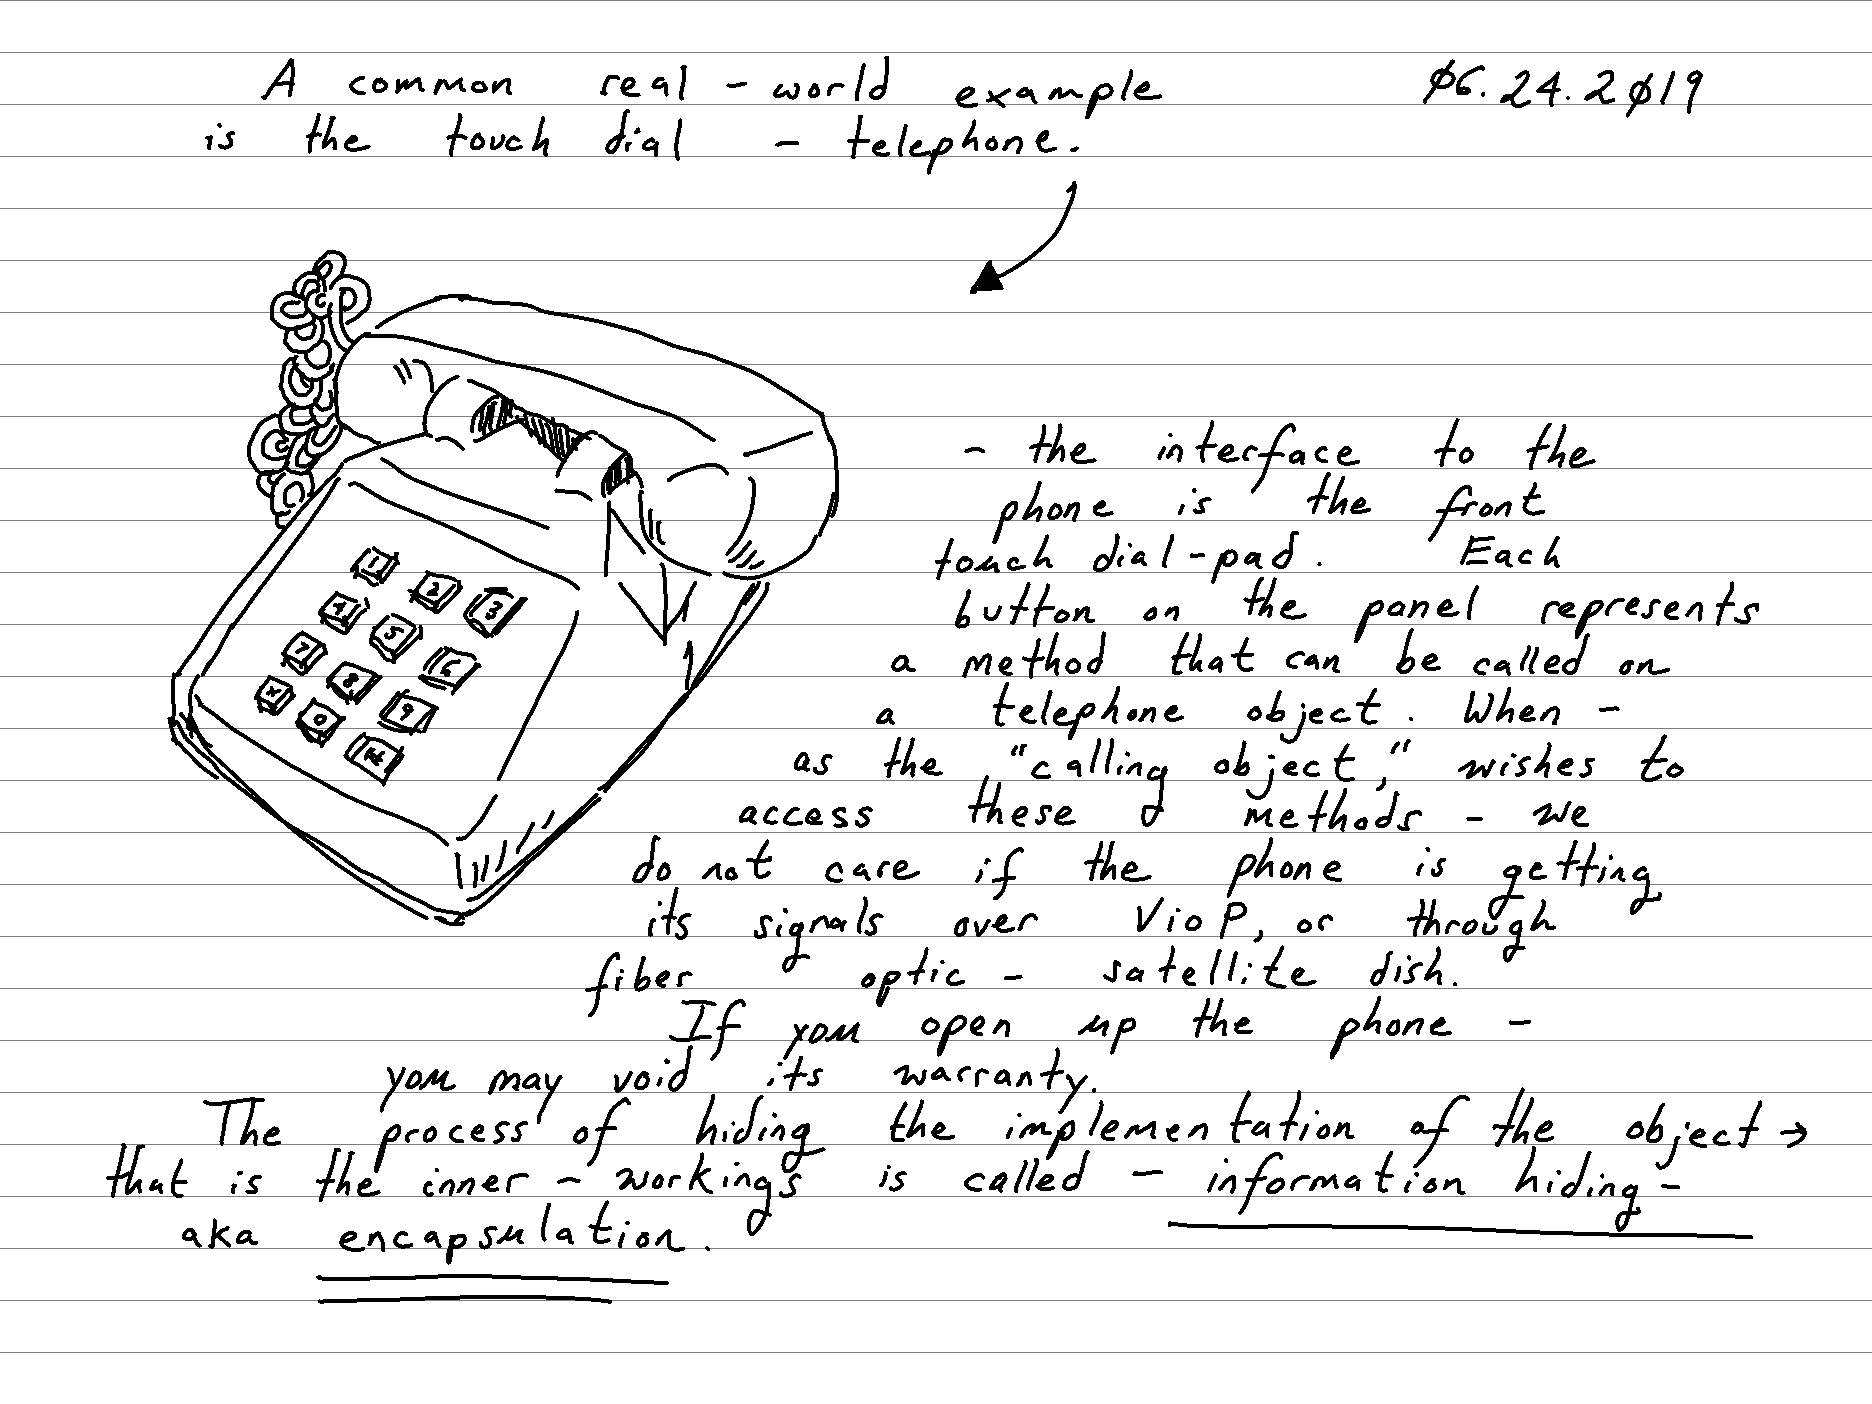 A common real - world example
ø6.24.2ø19
is the touch dial - telephone.
1
2
3
4
5
6
7
8
9
*
0
#
- the interface to the
phone is the front
touch dial-pad. Each
button on the panel represents
a method that can be called on
a telephone object. When -
as the "calling object," wishes to
access these methods - we
do not care if the phone is getting
its signals over VioP, or through
fiber optic - satellite dish.
If you open up the phone -
you may void its warranty.
The process of hiding the implementation of the object →
that is the inner - workings is called - information hiding -
aka encapsulation.